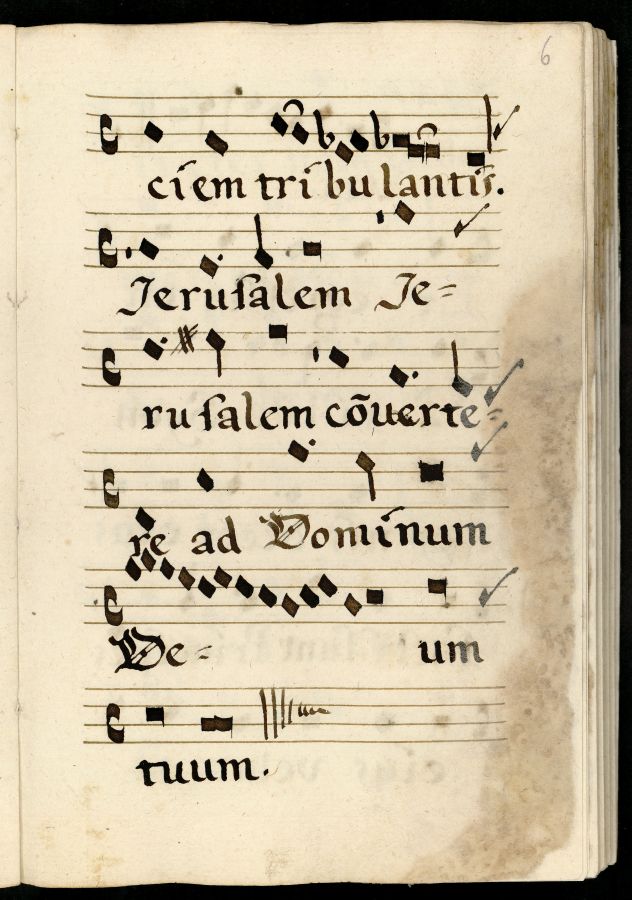 6
ciem tribulantis.
Jerusalem Je=
rusalem cōuerte=
re ad Dominum
De= um
tuum.